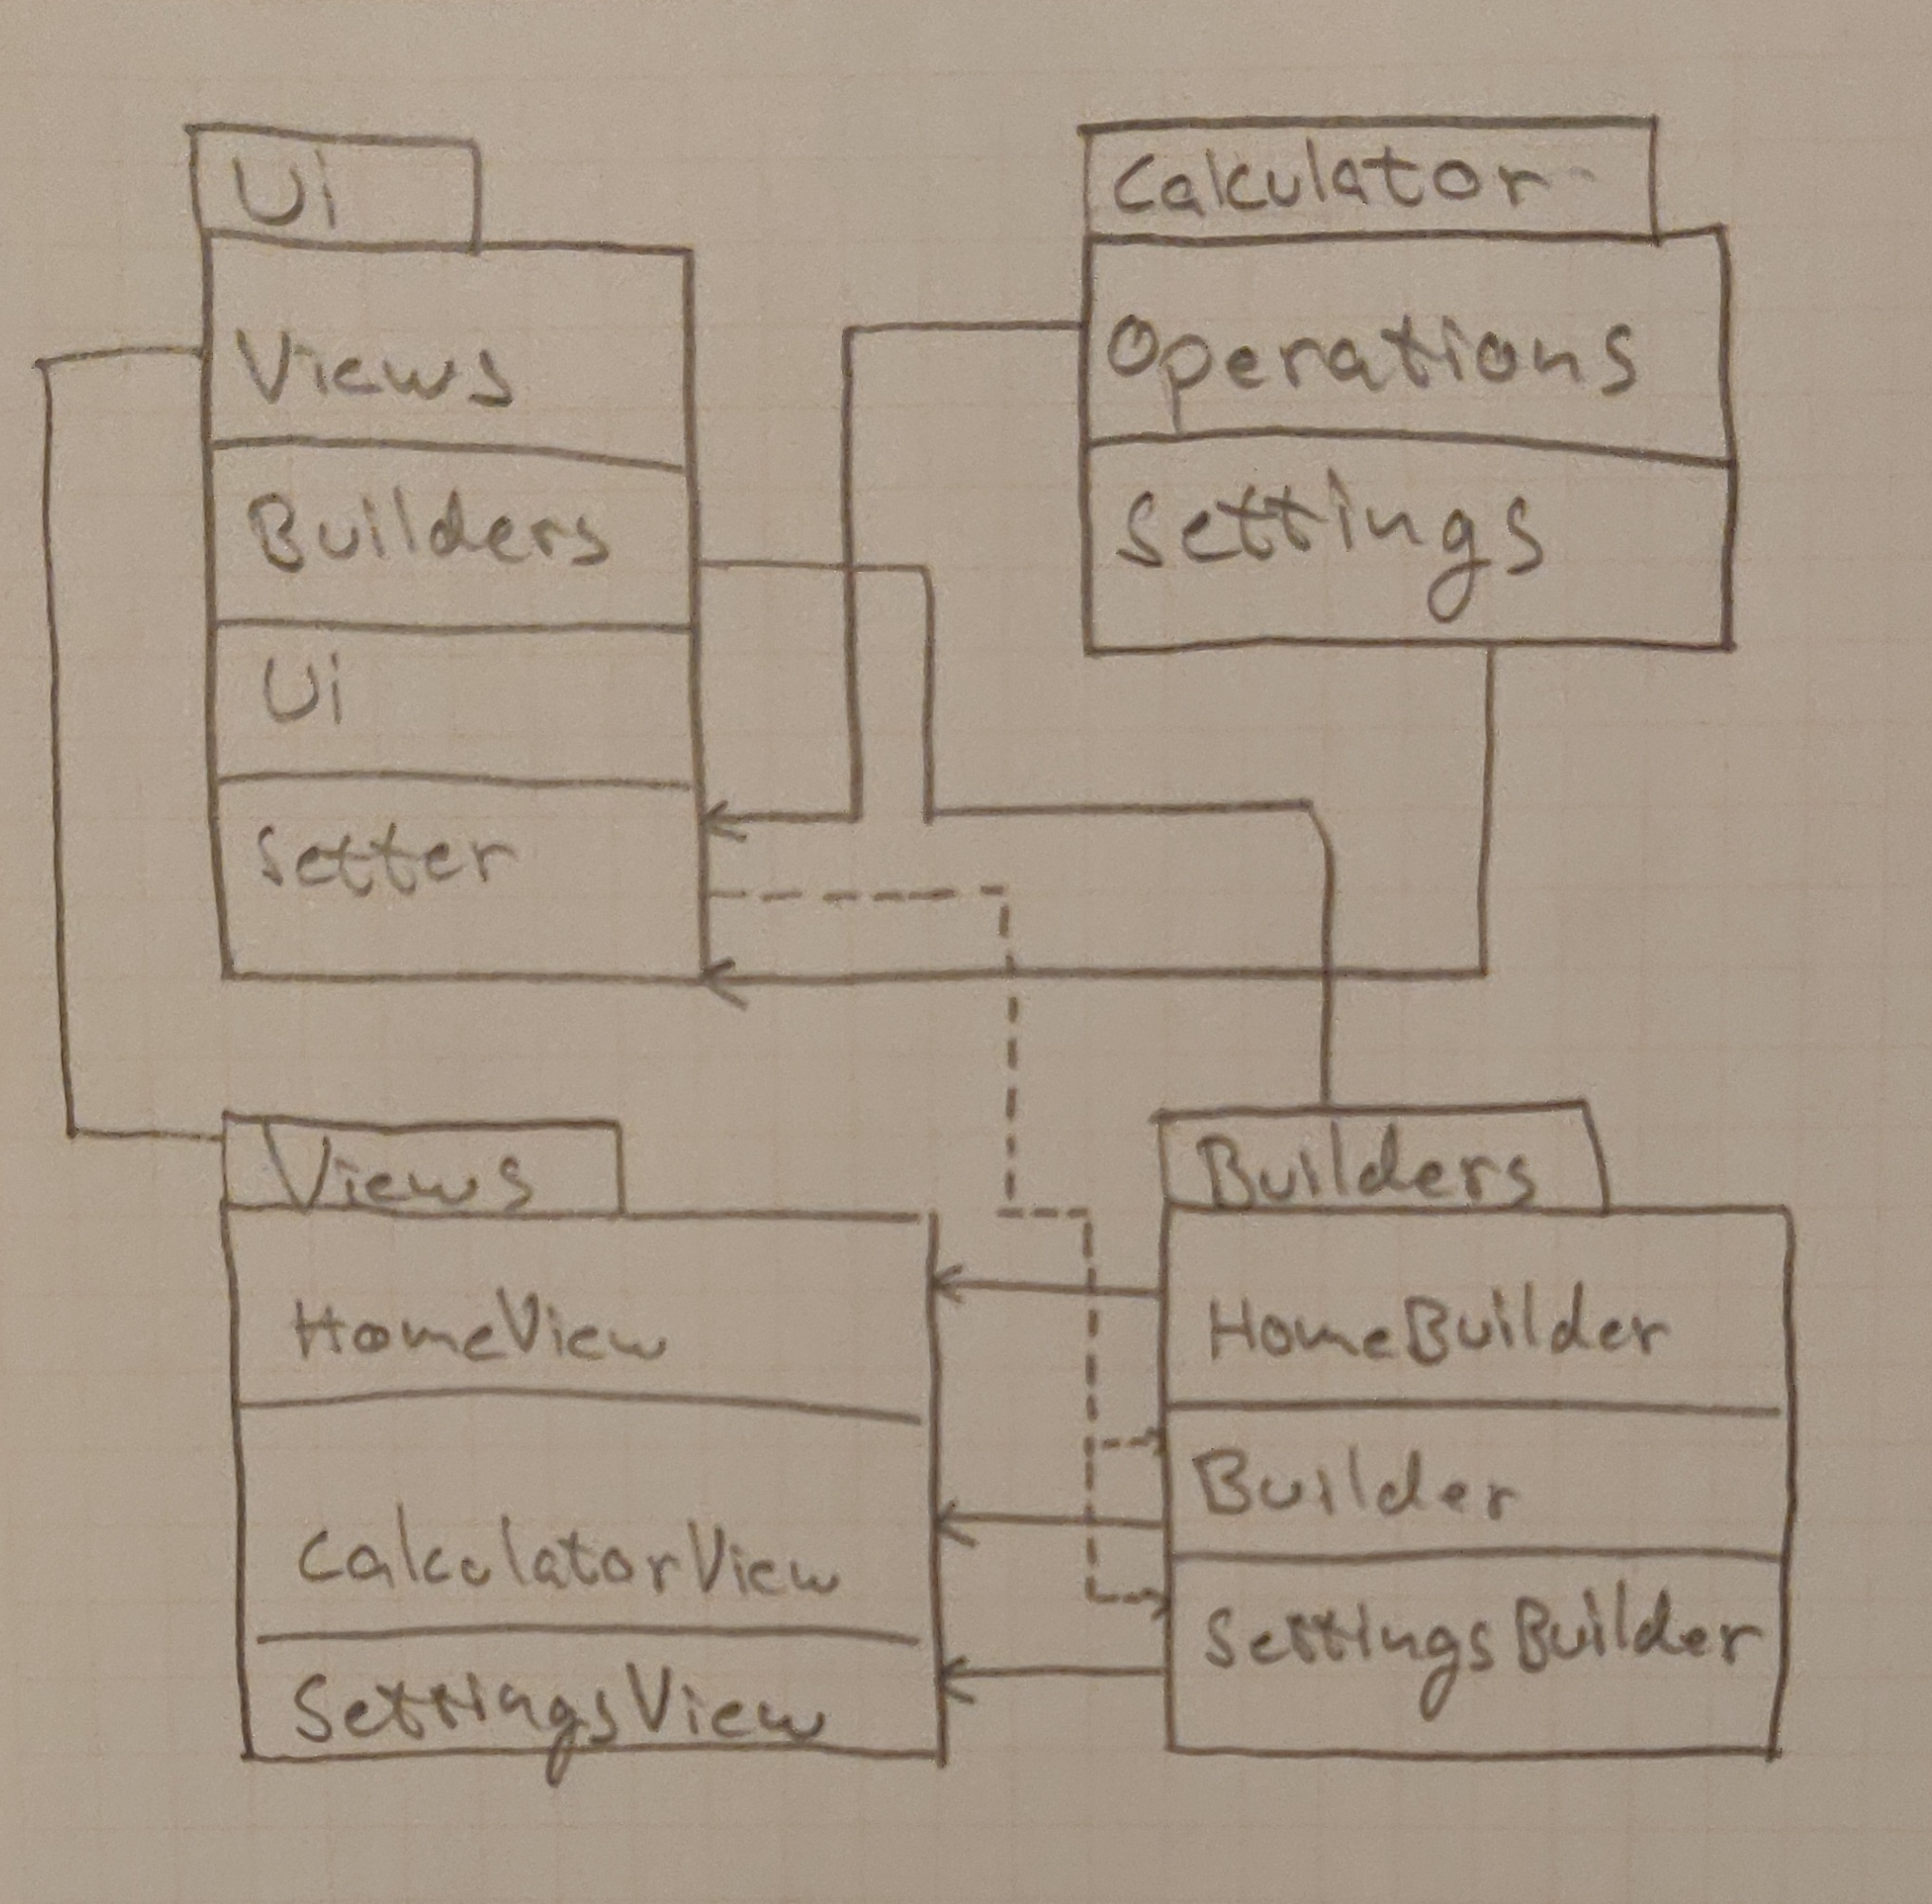 Ui
Views
Builders
Ui
Setter
Calculator
Operations
Settings
Views
HomeView
CalculatorView
SettingsView
Builders
HomeBuilder
Builder
SettingsBuilder